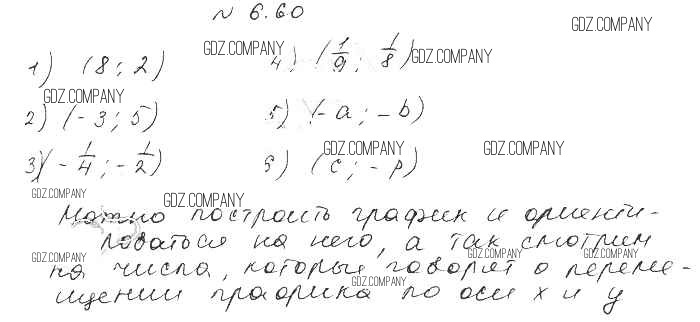 № 6.60
1) (8; 2) 4) (1/9; 1/8)
2) (-3; 5) 5) (-a; -b)
3) (-1/4; -1/2) 6) (c; -p)
Можно построить график и ориенти-
роваться на него, а так смотрим
на числа, которые говорят о переме-
щении графика по оси x и y
GDZ.COMPANY
GDZ.COMPANY
GDZ.COMPANY
GDZ.COMPANY
GDZ.COMPANY
GDZ.COMPANY
GDZ.COMPANY
GDZ.COMPANY
GDZ.COMPANY
GDZ.COMPANY
GDZ.COMPANY
GDZ.COMPANY